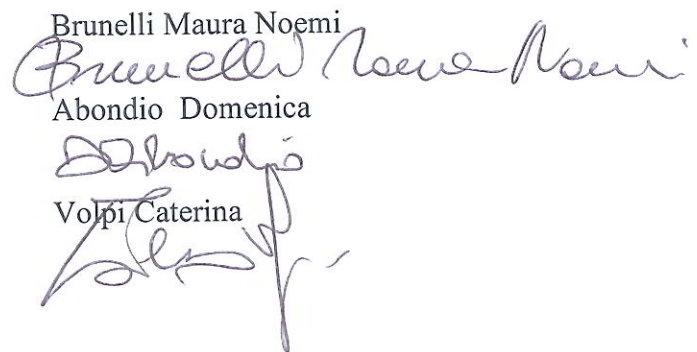 Brunelli Maura Noemi
Brunelli Maura Noemi
Abondio Domenica
DAbondio
Volpi Caterina